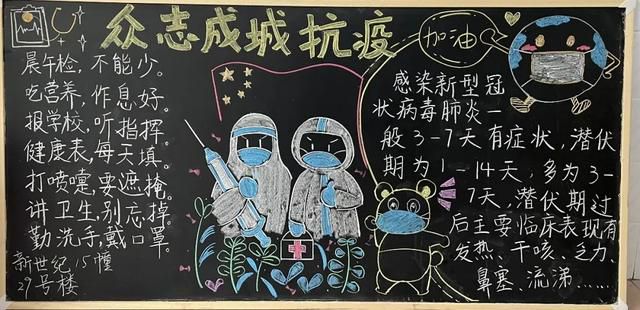 众志成城抗疫
加油
晨午检，不能少。
吃营养，作息好。
报学校，听指挥。
健康表，每天填。
打喷嚏，要遮掩。
讲卫生，别忘掉。
勤洗手，戴口罩。
新世纪15幢
29号楼
感染新型冠
状病毒肺炎一
般3-7天有症状，潜伏
期为1-14天，多为3-
7天，潜伏期过
后主要临床表现有
发热、干咳、乏力、
鼻塞、流涕……